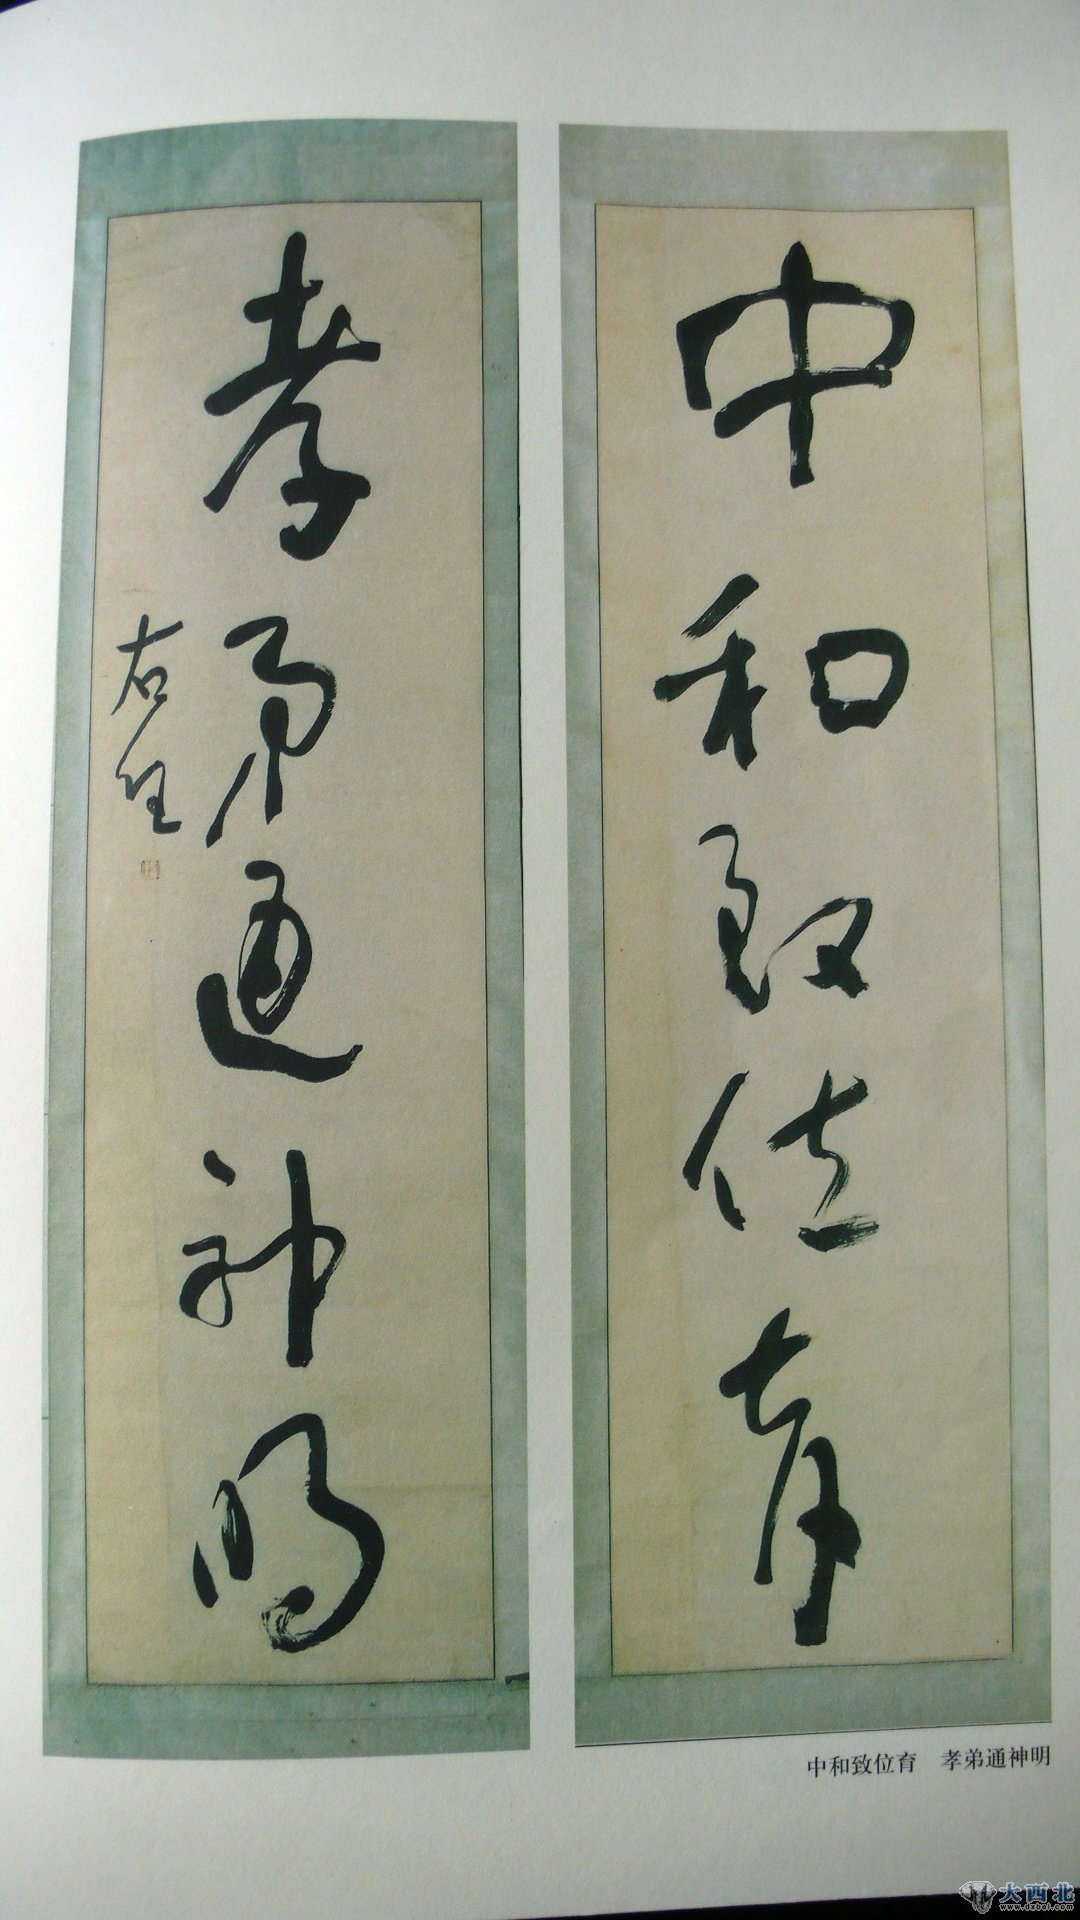 中和致位育
孝弟通神明
右任
中和致位育 孝弟通神明
大西北
www.dxbei.com